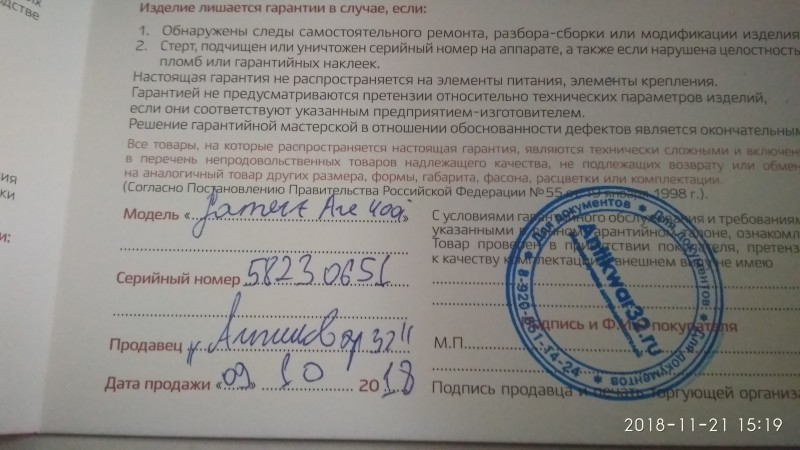 Изделие лишается гарантии в случае, если:
1. Обнаружены следы самостоятельного ремонта, разбора-сборки или модификации изделия
2. Стерт, подчищен или уничтожен серийный номер на аппарате, а также если нарушена целостность
пломб или гарантийных наклеек.
Настоящая гарантия не распространяется на элементы питания, элементы крепления.
Гарантией не предусматриваются претензии относительно технических параметров изделий,
если они соответствуют указанным предприятием-изготовителем.
Решение гарантийной мастерской в отношении обоснованности дефектов является окончательным
Все товары, на которые распространяется настоящая гарантия, являются технически сложными и включены
в перечень непродовольственных товаров надлежащего качества, не подлежащих возврату или обмену
на аналогичный товар других размера, формы, габарита, фасона, расцветки или комплектации.
(Согласно Постановлению Правительства Российской Федерации №55 1998 г.).
Модель « Ace 400i»
Серийный номер 58230651
Продавец "Антиквар 32"
Дата продажи «09» 10 2018
С условиями гарантийного обслуживания и требованиями
указанными в гарантийном талоне, ознакомлен
Товар проверен в присутствии покупателя, претензий
к качеству комплектации внешнем виду не имею
Подпись и Ф.И.О. покупателя
М.П.
Подпись продавца и печать торгующей организа
Antikwar32.ru
Для документов * Для документов * Для документов
2018-11-21 15:19